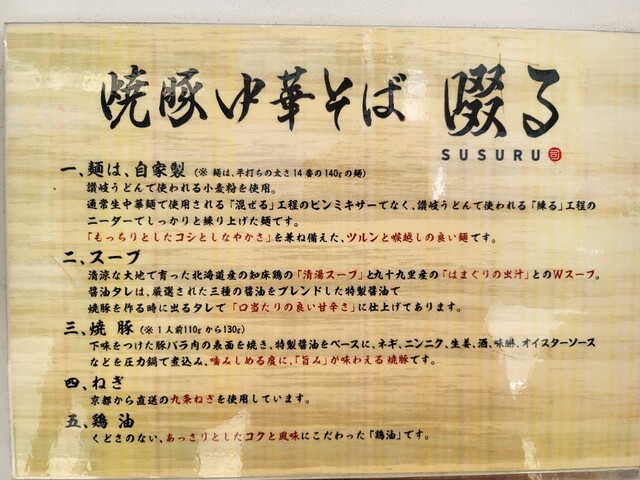 焼豚中華そば 啜る
SUSURU
一、麺は、自家製 (※ 麺は、平打ちの太さ14番の140gの麺)
讃岐うどんで使われる小麦粉を使用。
通常生中華麺で使用される「混ぜる」工程のピンミキサーでなく、讃岐うどんで使われる「練る」工程の
ニーダーでしっかりと練り上げた麺です。
「もっちりとしたコシとしなやかさ」を兼ね備えた、ツルンと喉越しの良い麺です。
二、スープ
清涼な大地で育った北海道産の知床鶏の「清湯スープ」と九十九里産の「はまぐりの出汁」とのWスープ。
醤油タレは、厳選された三種の醤油をブレンドした特製醤油で
焼豚を作る時に出るタレで「口当たりの良い甘辛さ」に仕上げてあります。
三、焼豚 (※ 1人前110gから130g)
下味をつけた豚バラ肉の表面を焼き、特製醤油をベースに、ネギ、ニンニク、生姜、酒、味醂、オイスターソース
などを圧力鍋で煮込み、噛みしめる度に、「旨み」が味わえる焼豚です。
四、ねぎ
京都から直送の九条ねぎを使用しています。
五、鶏油
くどさのない、あっさりとしたコクと風味にこだわった「鶏油」です。